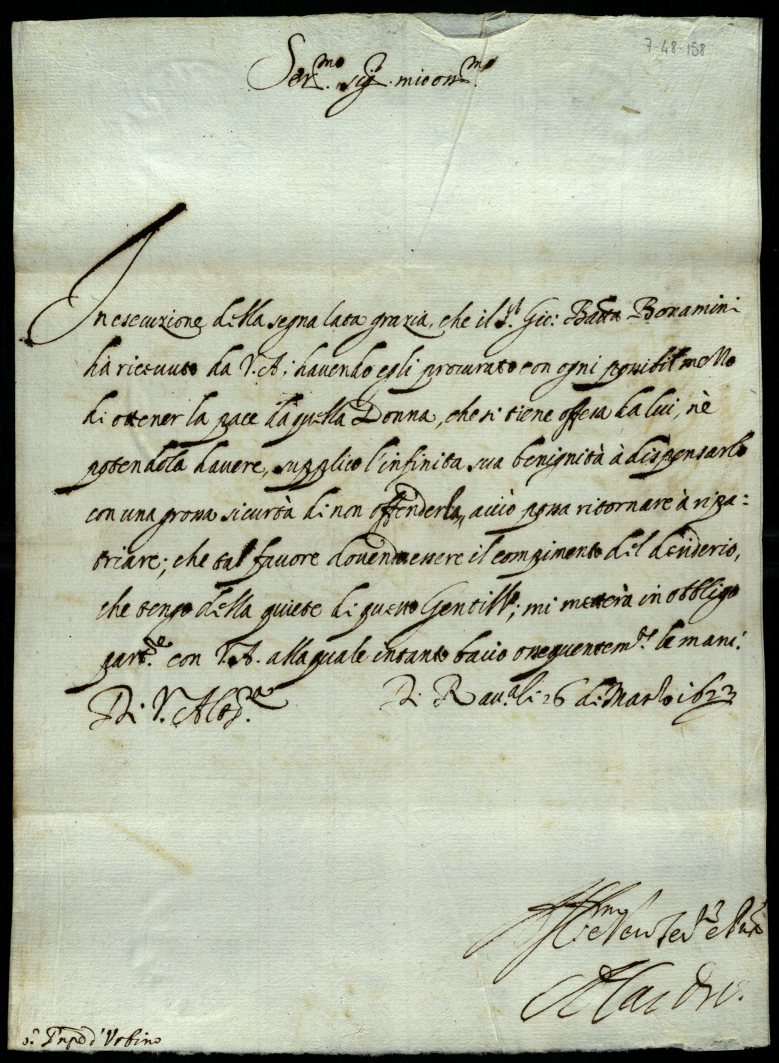 7-48-158
Ser.mo sig.r mio oss.mo
In esecuzione della segnalata grazia, che il S.r Gio: Batta Bonamini
hà riceuuto da V.A; hauendo egli procurato con ogni possibil mezzo
di ottener la pace da quella Donna, che si tiene offesa da lui, nè
potendola hauere, supplico l'infinita sua benignità à dispensarlo
con una grossa sicurtà di non offenderla, acciò possa ritornare à ripa=
triare; che tal fauore douendo essere il compimento del desiderio,
che tengo della quiete di questo Gentil; mi metterà in obbligo
part.le con V.A. alla quale intanto bacio ossequentem.te le mani.
Di V. Altez.a Di Rau.a li 26 di Marzo 1623
S.r Pnpe d'Vrbino